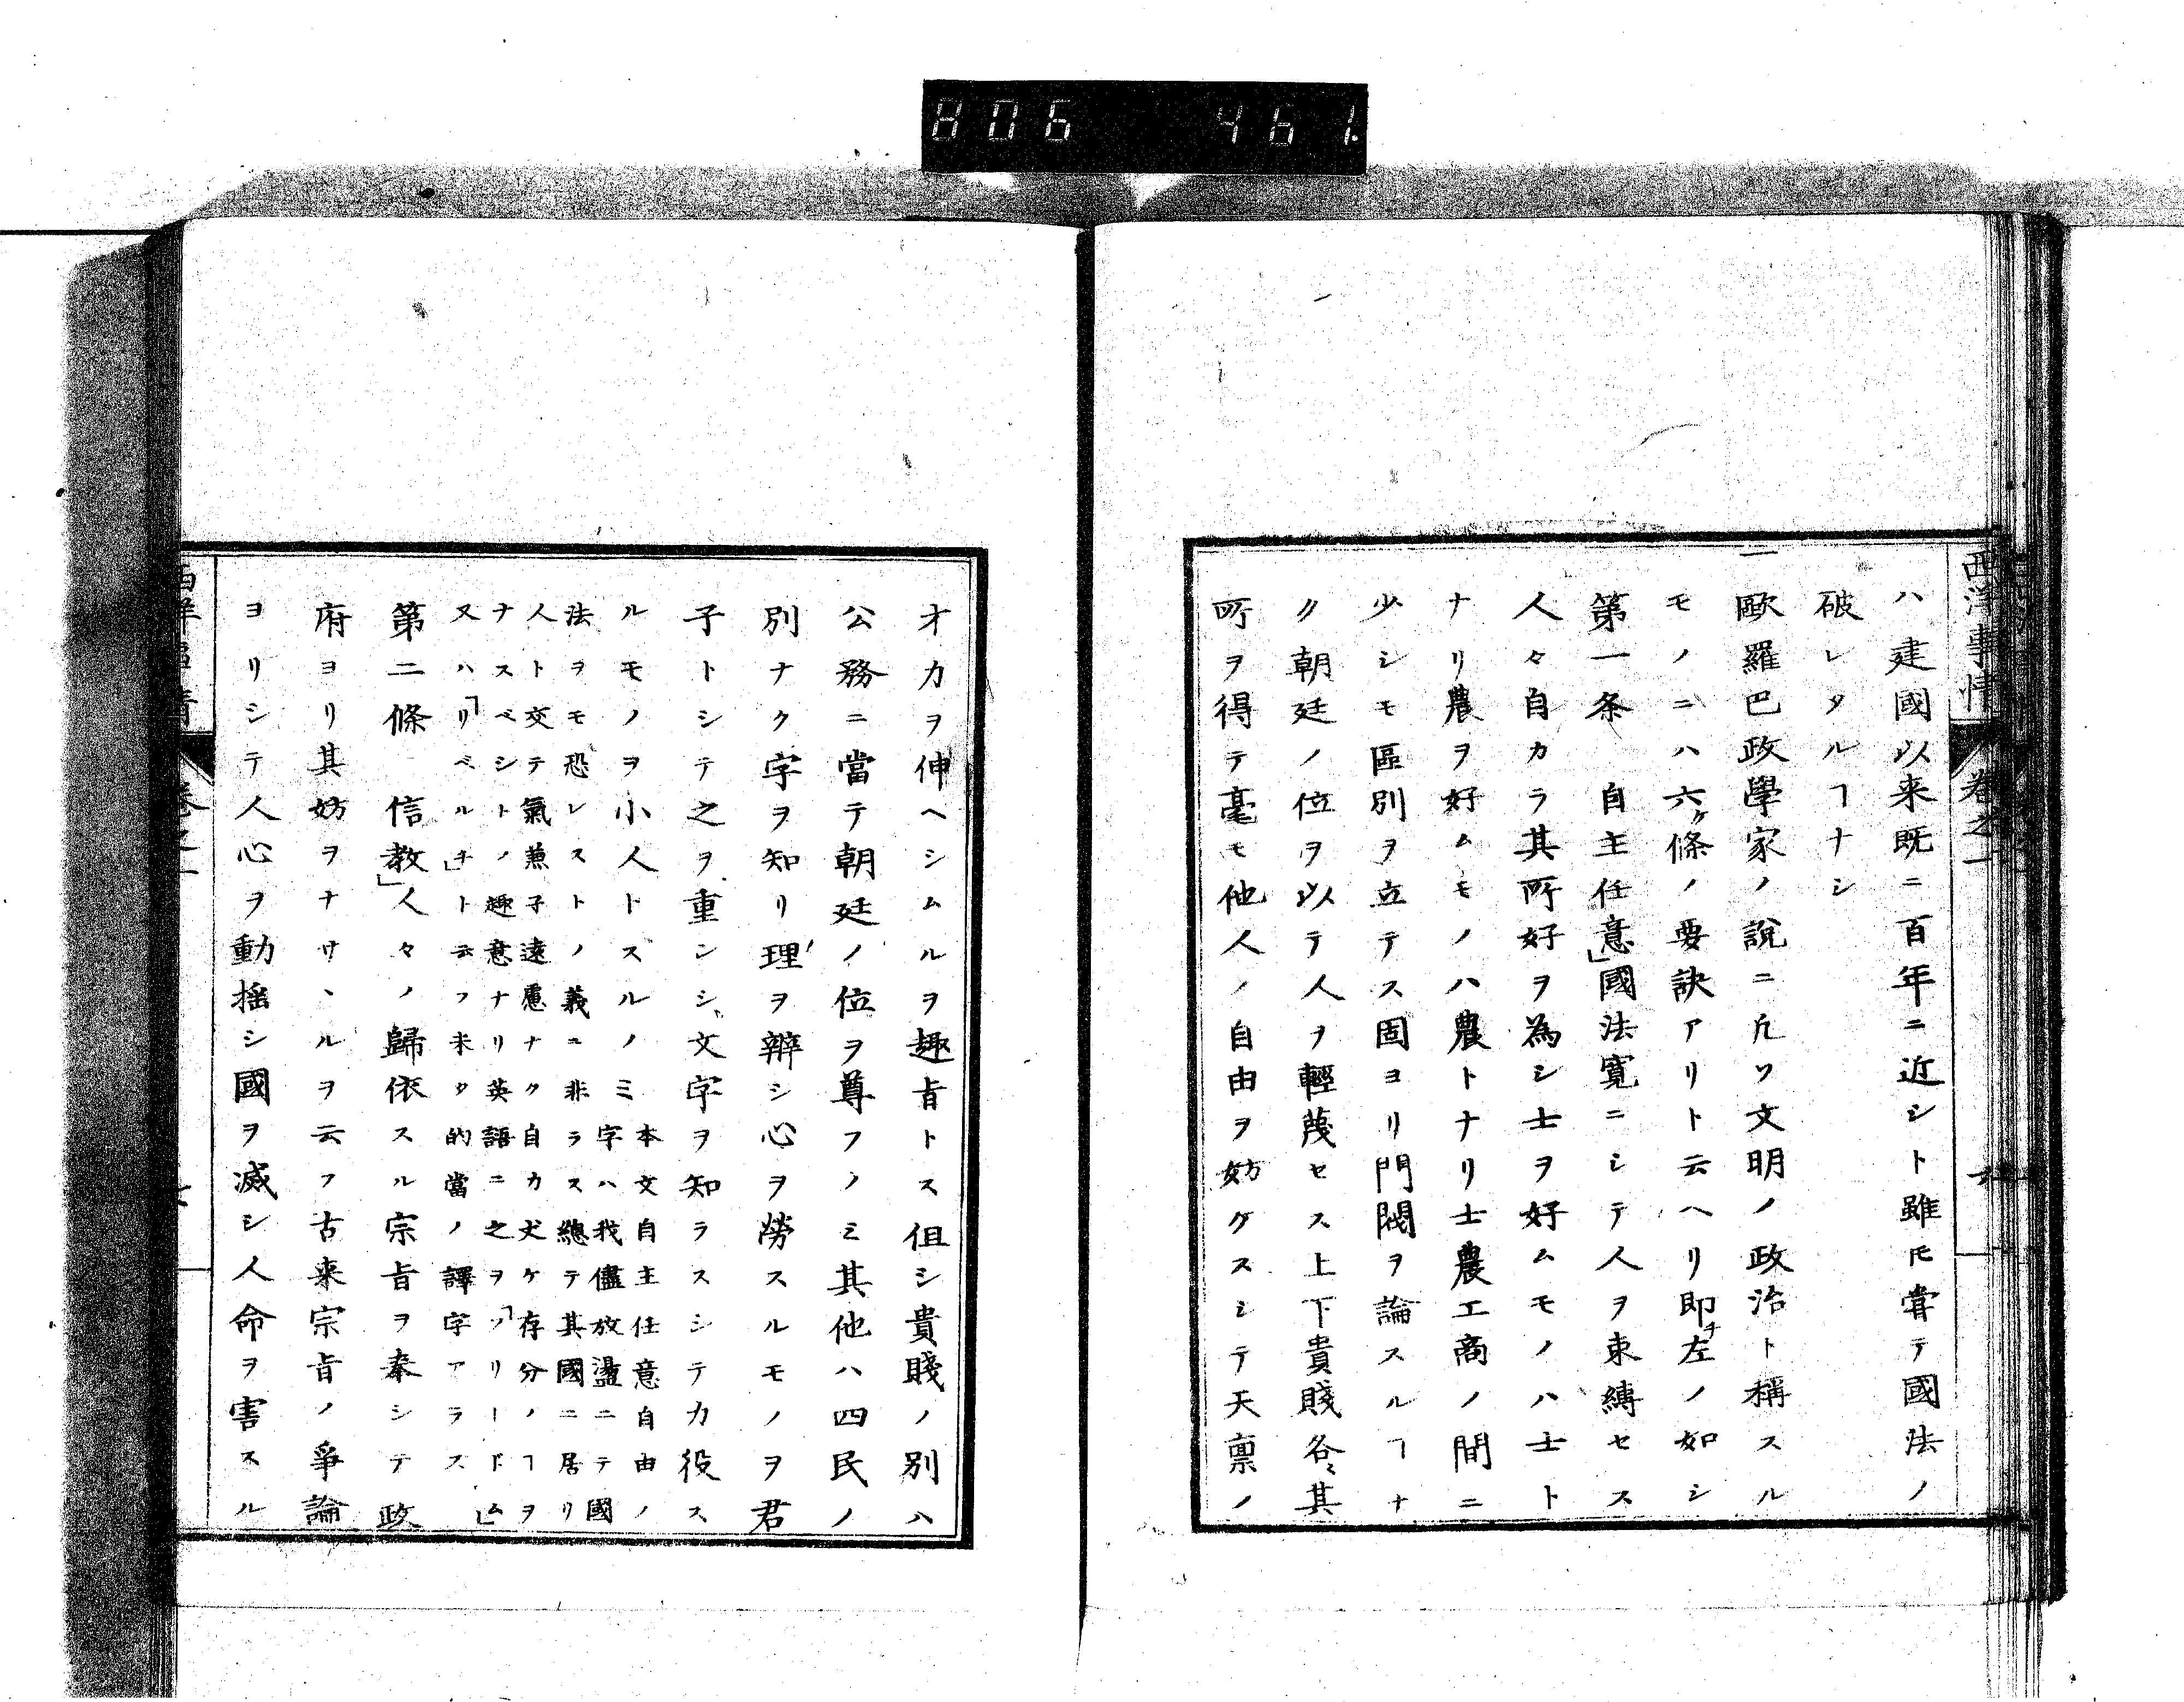 806 461
西洋事情 巻之一
ハ建國以来既ニ百年ニ近シト雖𪜈甞テ國法ノ
破レタルヿナシ
一歐羅巴政學家ノ說ニ凢ソ文明ノ政治ト稱スル
モノニハ六ケ條ノ要訣アリト云ヘリ即チ左ノ如シ
第一条 自主任意」國法寛ニシテ人ヲ束縛セス
人々自カラ其所好ヲ為シ士ヲ好ムモノハ士ト
ナリ農ヲ好ムモノハ農トナリ士農工商ノ間ニ
少シモ區別ヲ立テス固ヨリ門閥ヲ論スルヿナ
ク朝廷ノ位ヲ以テ人ヲ輕蔑セス上下貴賤各〻其
所ヲ得テ毫モ他人ノ自由ヲ妨ケスシテ天禀ノ
才力ヲ伸ヘシムルヲ趣旨トス但シ貴賤ノ別ハ
公務ニ當テ朝廷ノ位ヲ尊フノミ其他ハ四民ノ
別ナク字ヲ知リ理ヲ辨シ心ヲ勞スルモノヲ君
子トシテ之ヲ重ンシ文字ヲ知ラスシテ力役ス
ルモノヲ小人トスルノミ
本文自主任意自由ノ
字ハ我儘放盪ニテ國
法ヲモ恐レストノ義ニ非ラス總テ其國ニ居リ
人ト交テ氣兼子遠慮ナク自カ丈ケ存分ノヿヲ
ナスベシトノ趣意ナリ英語ニ之ヲ「フリードム」
又ハ「リベルチ」ト云フ未タ的當ノ譯字アラス
第二條 信教」人々ノ歸依スル宗旨ヲ奉シテ政
府ヨリ其妨ヲナサヽルヲ云フ古来宗旨ノ爭論
ヨリシテ人心ヲ動揺シ國ヲ滅シ人命ヲ害スル
西洋事情 巻之一